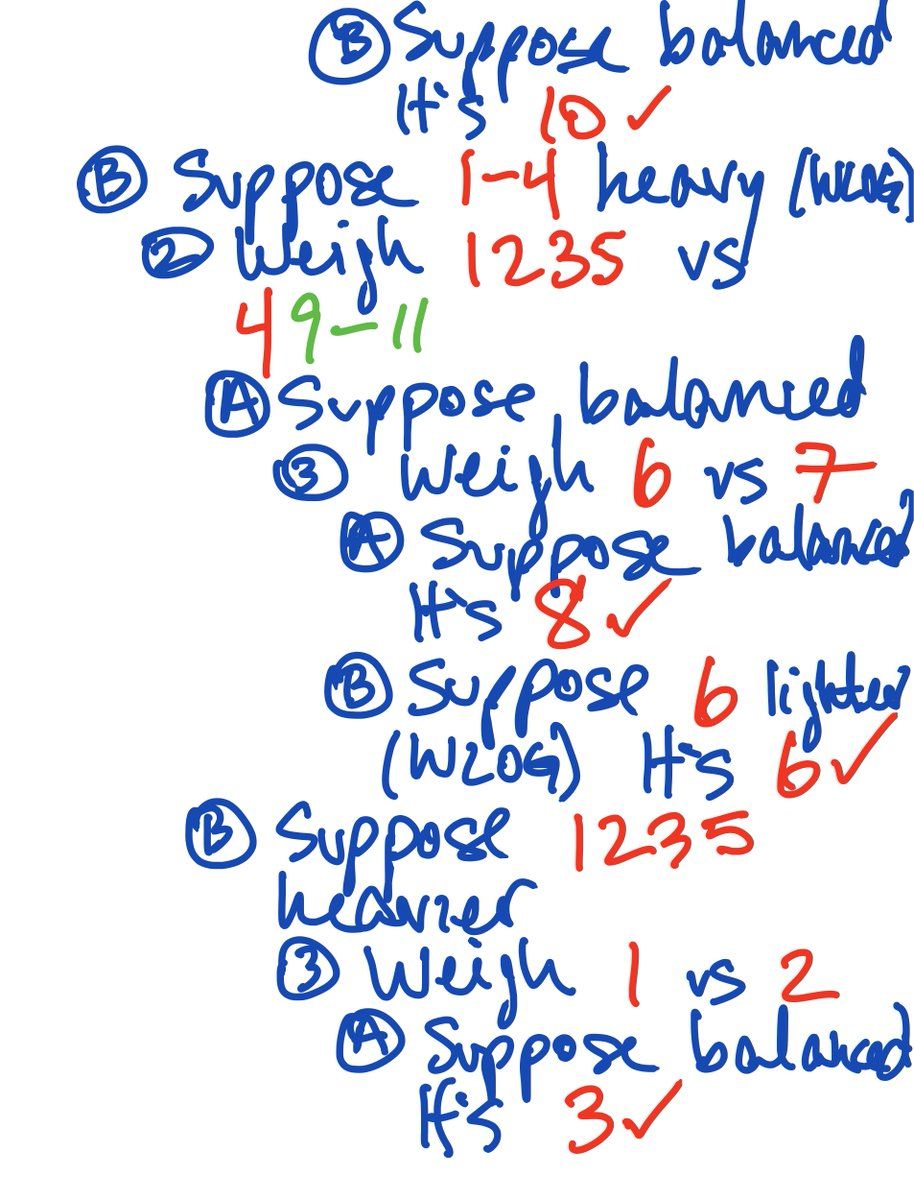 Ⓑ Suppose balanced
It's 10 ✓
Ⓑ Suppose 1-4 heavy (WLOG)
② Weigh 1235 vs
4 9-11
Ⓐ Suppose balanced
③ Weigh 6 vs 7
Ⓐ Suppose balanced
It's 8 ✓
Ⓑ Suppose 6 lighter
(WLOG) It's 6 ✓
Ⓑ Suppose 1235
heavier
③ Weigh 1 vs 2
Ⓐ Suppose balanced
It's 3 ✓